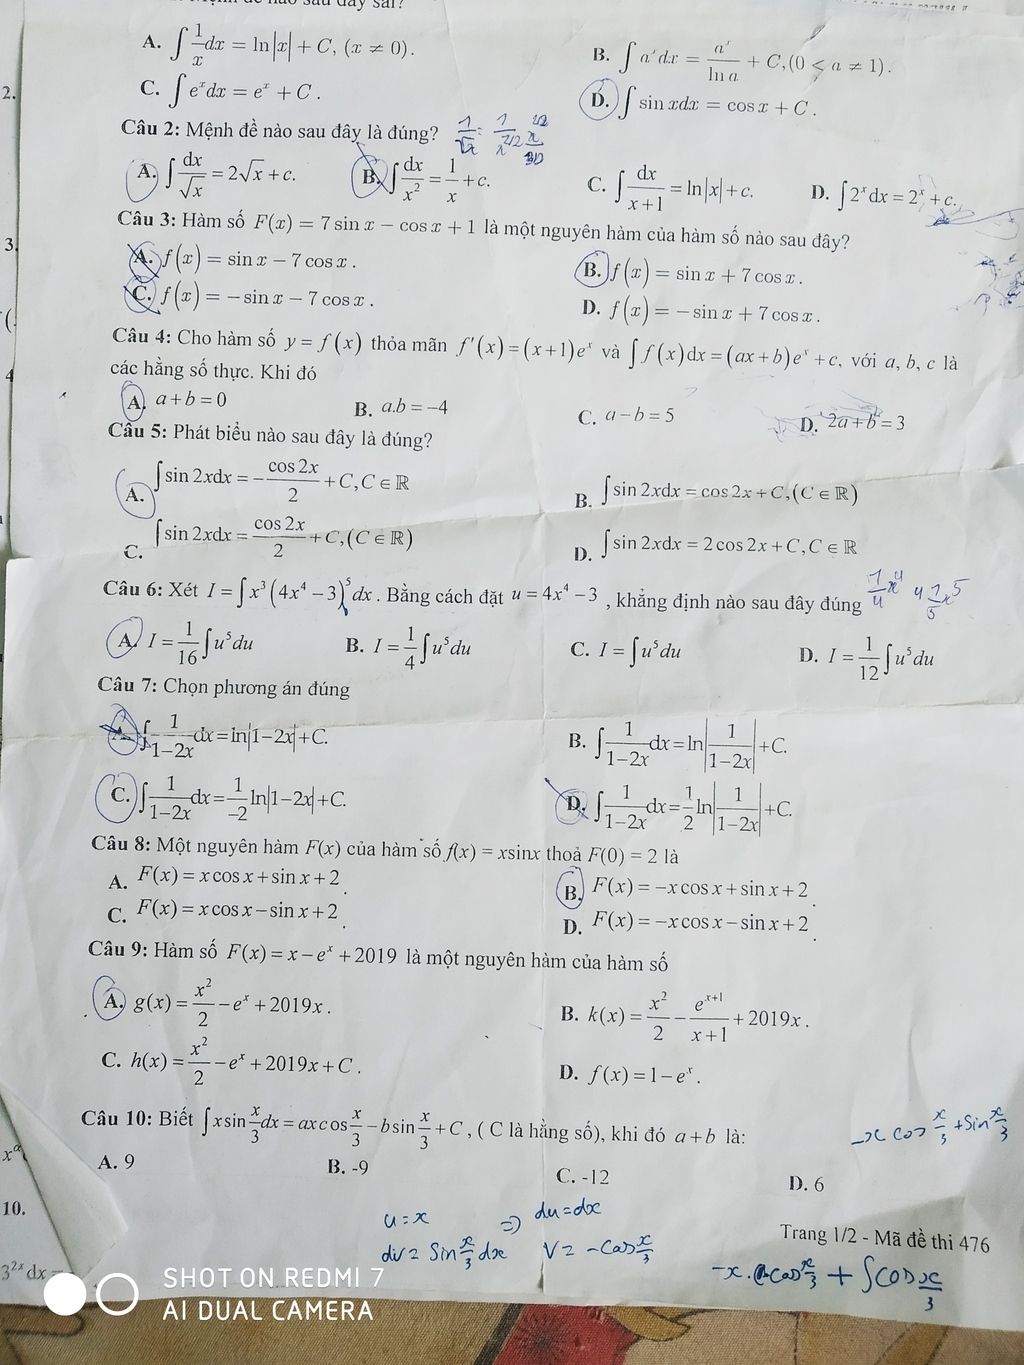 Mệnh đề nào sau đây sai?
A. ∫ 1/x dx = ln|x| + C, (x ≠ 0).
B. ∫ aˣdx = aˣ/ln a + C, (0 < a ≠ 1).
2.
C. ∫ eˣdx = eˣ + C.
D. ∫ sin xdx = cos x + C.
Câu 2: Mệnh đề nào sau đây là đúng?
A. ∫ dx/√x = 2√x + c.
B. ∫ dx/x² = 1/x + c.
C. ∫ dx/(x+1) = ln|x| + c.
D. ∫ 2ˣdx = 2ˣ + c.
3.
Câu 3: Hàm số F(x) = 7 sin x − cos x + 1 là một nguyên hàm của hàm số nào sau đây?
A. f(x) = sin x − 7 cos x.
B. f(x) = sin x + 7 cos x.
C. f(x) = − sin x − 7 cos x.
D. f(x) = − sin x + 7 cos x.
Câu 4: Cho hàm số y = f(x) thỏa mãn f'(x) = (x+1)eˣ và ∫ f(x)dx = (ax+b)eˣ + c, với a, b, c là
4
các hằng số thực. Khi đó
A. a + b = 0
B. a.b = −4
C. a − b = 5
D. 2a + b = 3
Câu 5: Phát biểu nào sau đây là đúng?
A. ∫ sin 2xdx = − cos 2x/2 + C, C ∈ ℝ
B. ∫ sin 2xdx = cos 2x + C, (C ∈ ℝ)
C. ∫ sin 2xdx = cos 2x/2 + C, (C ∈ ℝ)
D. ∫ sin 2xdx = 2 cos 2x + C, C ∈ ℝ
Câu 6: Xét I = ∫ x³(4x⁴ − 3)⁵dx. Bằng cách đặt u = 4x⁴ − 3, khẳng định nào sau đây đúng
A. I = 1/16 ∫ u⁵du
B. I = 1/4 ∫ u⁵du
C. I = ∫ u⁵du
D. I = 1/12 ∫ u⁵du
Câu 7: Chọn phương án đúng
A. ∫ 1/(1−2x) dx = ln|1−2x| + C.
B. ∫ 1/(1−2x) dx = ln|1/(1−2x)| + C.
C. ∫ 1/(1−2x) dx = 1/−2 ln|1−2x| + C.
D. ∫ 1/(1−2x) dx = 1/2 ln|1/(1−2x)| + C.
Câu 8: Một nguyên hàm F(x) của hàm số f(x) = xsinx thoả F(0) = 2 là
A. F(x) = x cos x + sin x + 2.
B. F(x) = −x cos x + sin x + 2.
C. F(x) = x cos x − sin x + 2.
D. F(x) = −x cos x − sin x + 2.
Câu 9: Hàm số F(x) = x − eˣ + 2019 là một nguyên hàm của hàm số
A. g(x) = x²/2 − eˣ + 2019x.
B. k(x) = x²/2 − eˣ⁺¹/(x+1) + 2019x.
C. h(x) = x²/2 − eˣ + 2019x + C.
D. f(x) = 1 − eˣ.
Câu 10: Biết ∫ x sin x/3 dx = ax cos x/3 − b sin x/3 + C, ( C là hằng số), khi đó a + b là:
−x cos x/3 + sin x/3
A. 9
B. -9
C. -12
D. 6
10.
u = x ⇒ du = dx
dv = sin x/3 dx V = −cos x/3
Trang 1/2 - Mã đề thi 476
3²ˣ dx =
SHOT ON REDMI 7
AI DUAL CAMERA